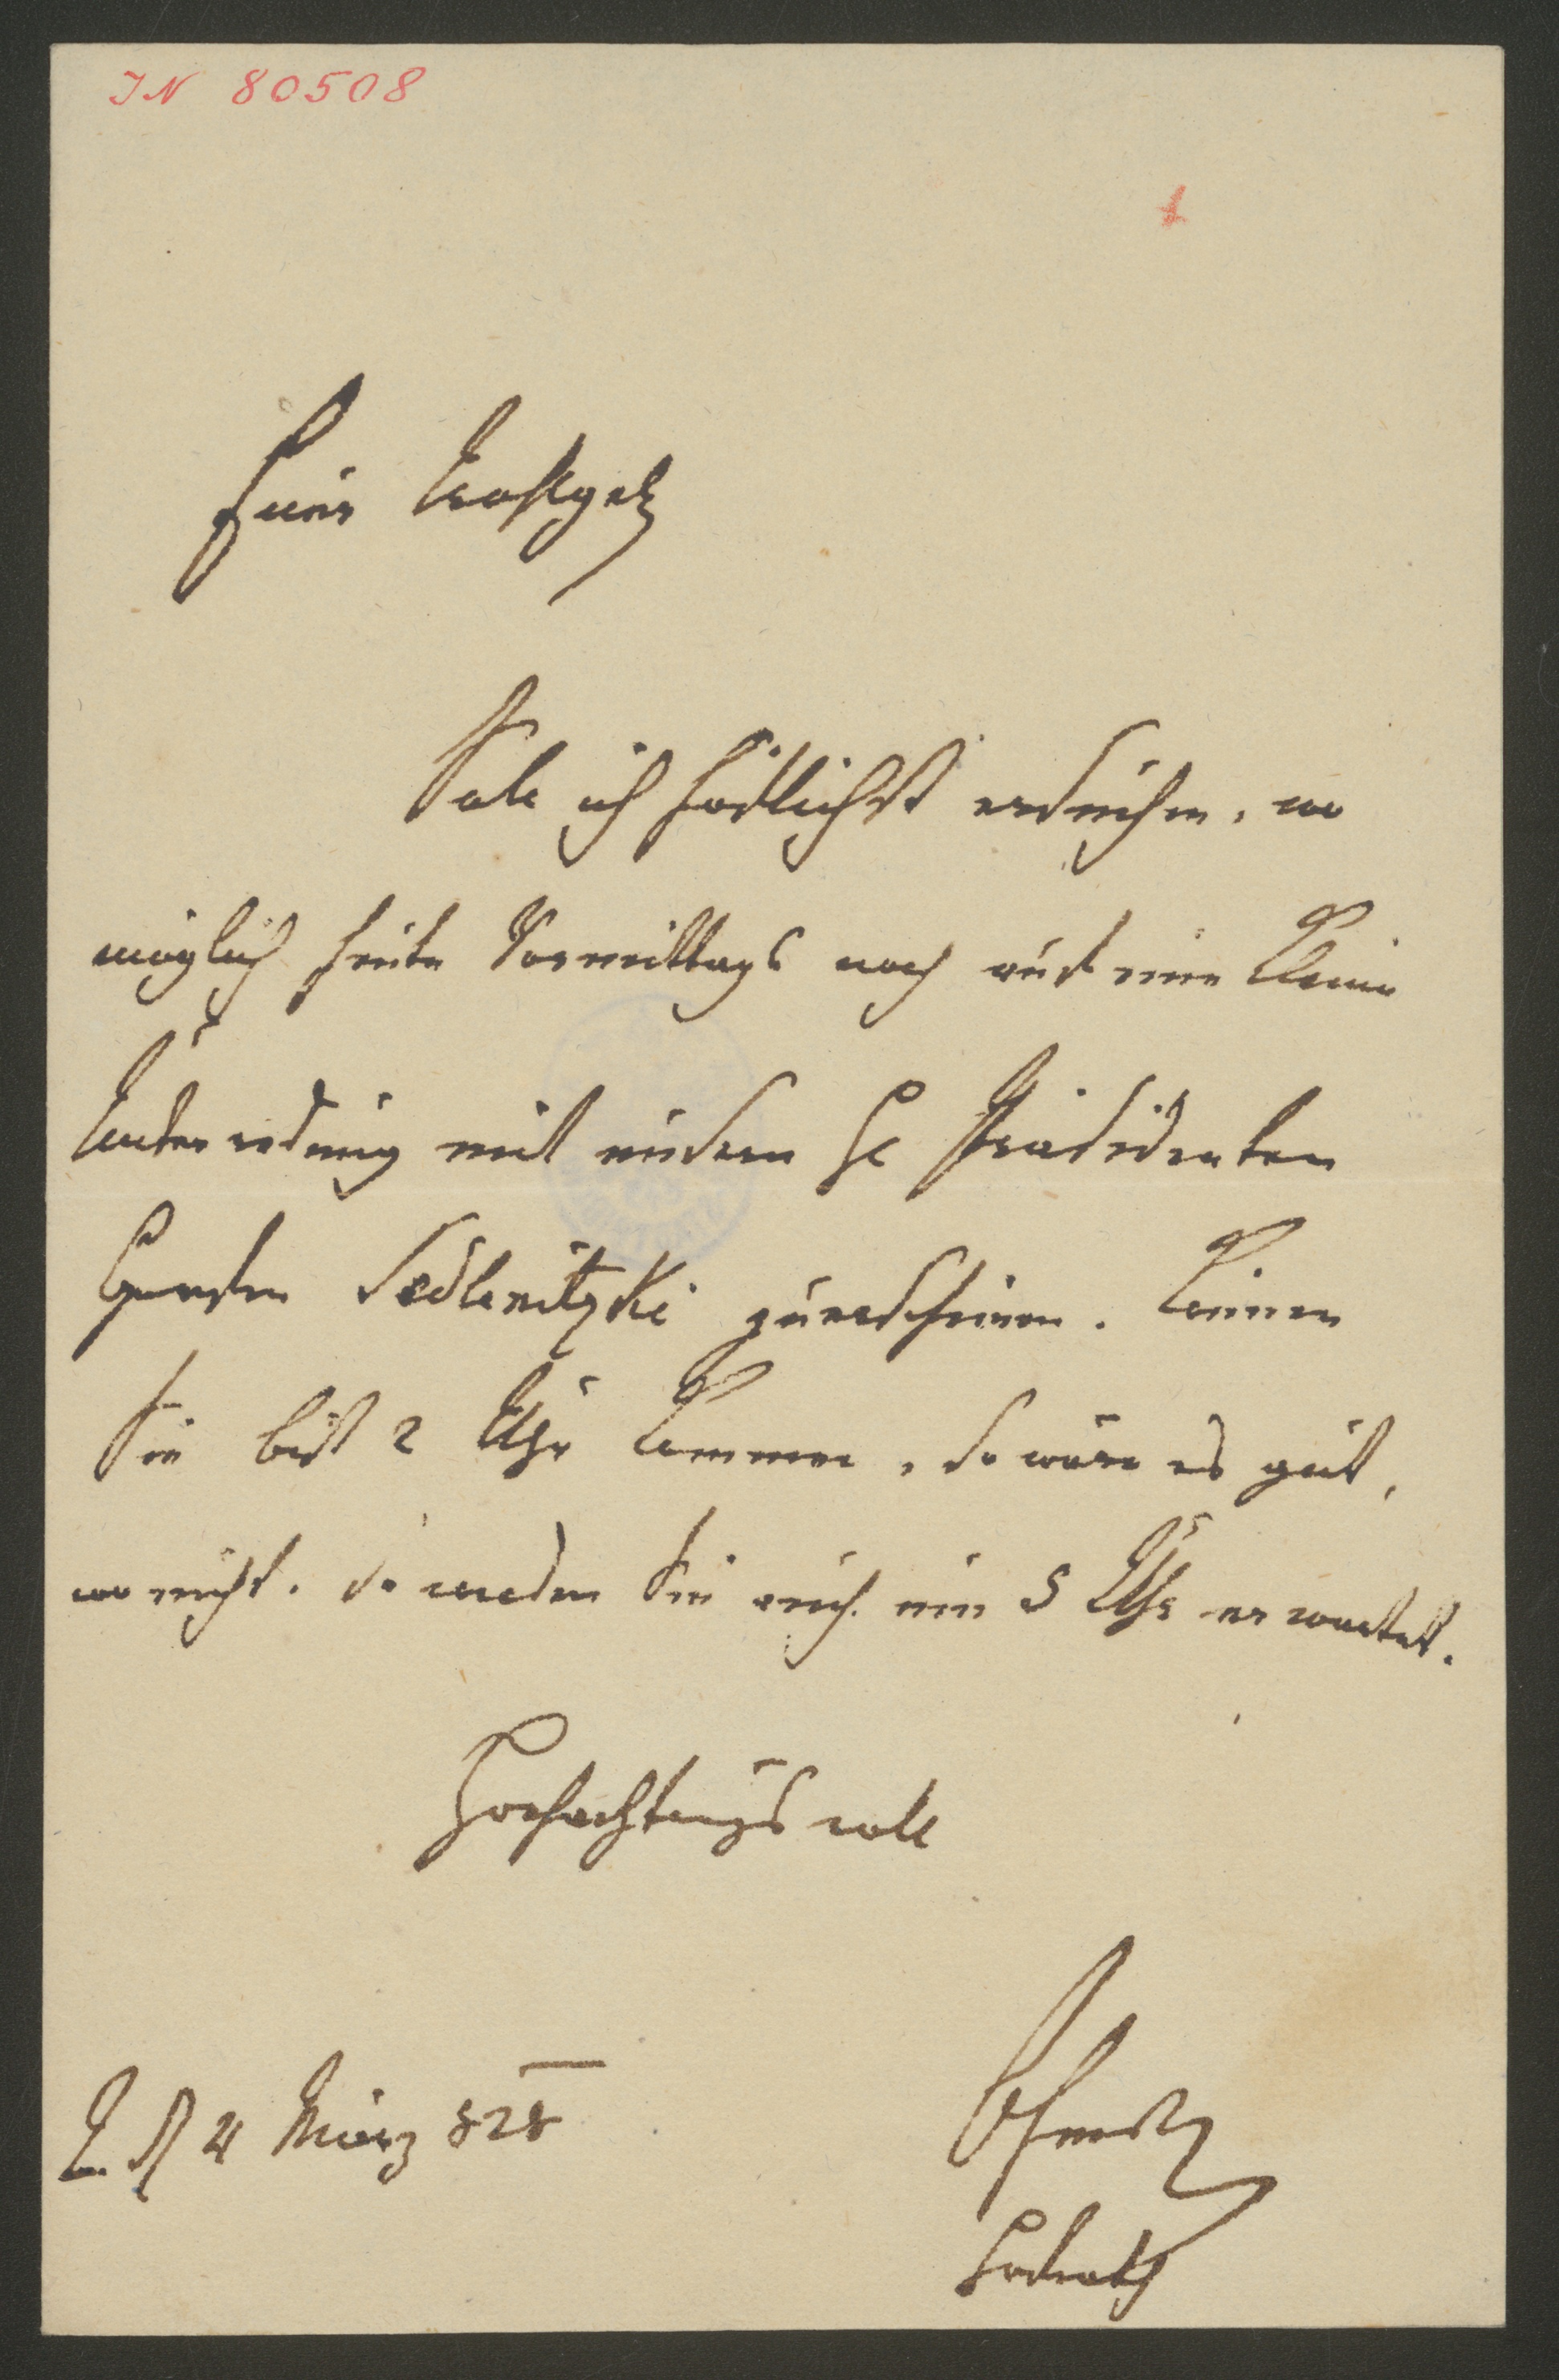 IN 80508
1
Euer Wohlgeb
Soll ich höflichst ersuchen, wo
möglich heute Vormittags noch auf eine kleine
Unterredung mit unserm H Präsidenten
Grafen Sedlnitzki zu erscheinen. Können
Sie bis 2 Uhr kommen, so wäre es gut,
wo nicht, so werden Sie auch um 5 Uhr erwartet.
Hochachtungsvoll
4 März 828
Ohms
Hofrath